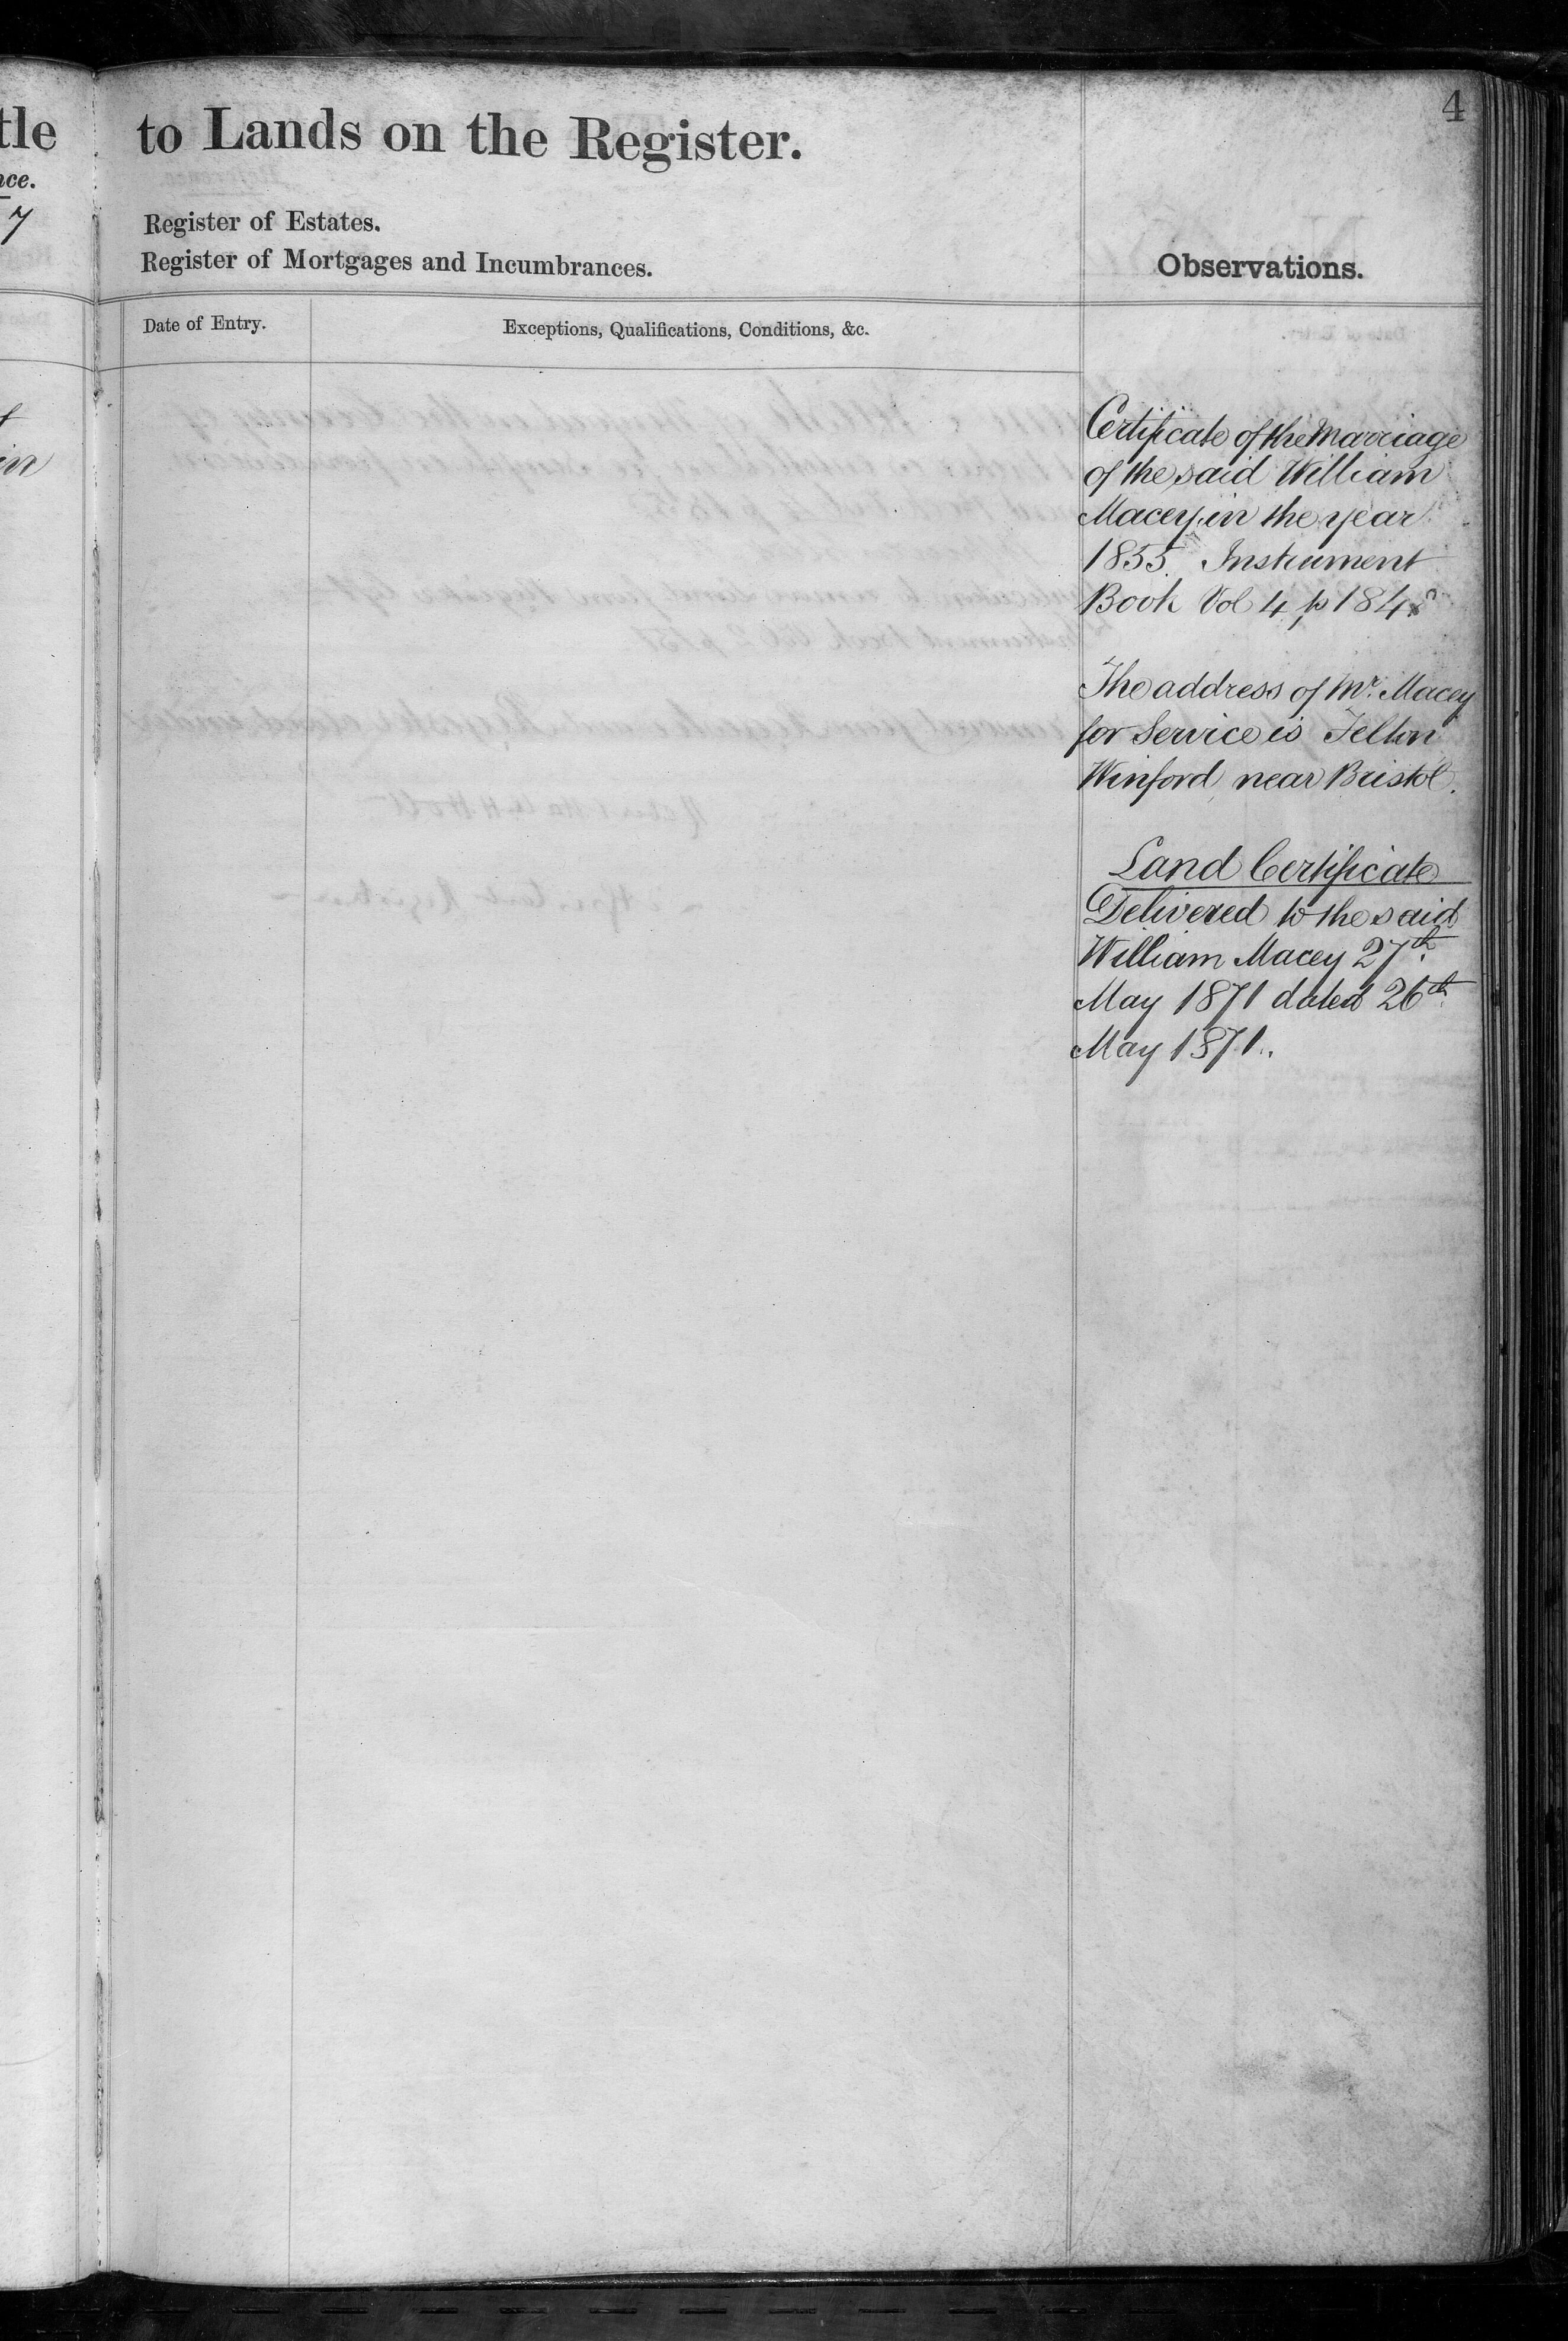 tle
nce.
7
in
to Lands on the Register.
4
Register of Estates.
Register of Mortgages and Incumbrances.
Observations.
Date of Entry.
Exceptions, Qualifications, Conditions, &c.
Certificate of the Marriage
of the said William
Macey in the year
1855. Instrument
Book Vol 4, p 184
The address of Mr. Macey
for Service is Felton
Winford near Bristol.
Land Certificate
Delivered to the said
William Macey 27th
May 1871 dated 26th
May 1871.